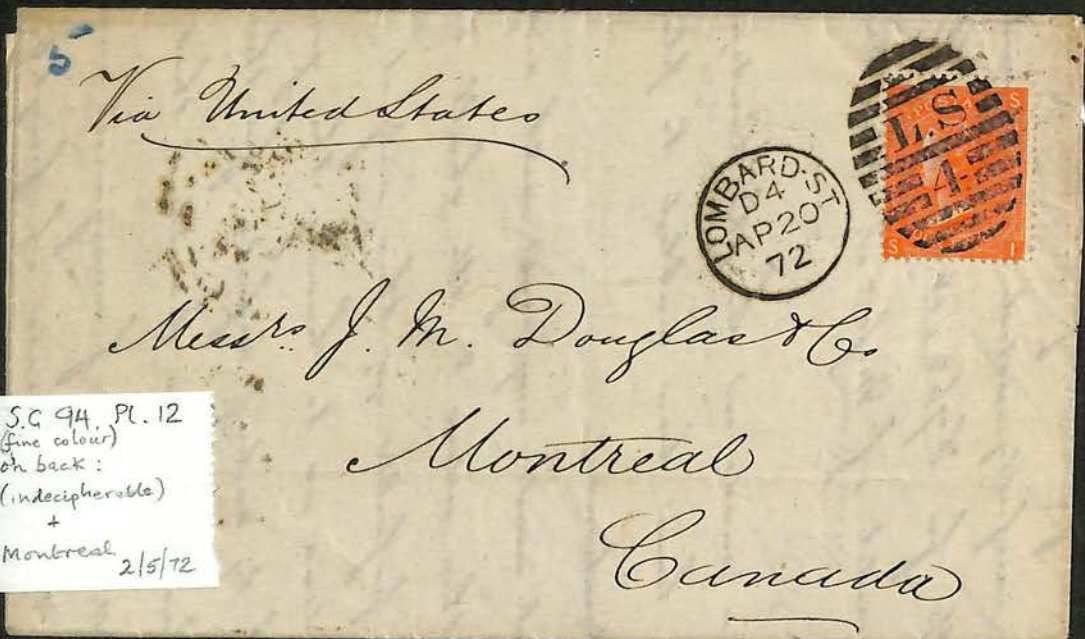 5
Via United States
L.S
4
S
S I
LOMBARD-ST
D4
AP20
72
Messrs. J. M. Douglas & Co
Montreal
Canada
S.G 94. Pl. 12
(fine colour)
on back :
(indecipherable)
+
Montreal
2/5/72